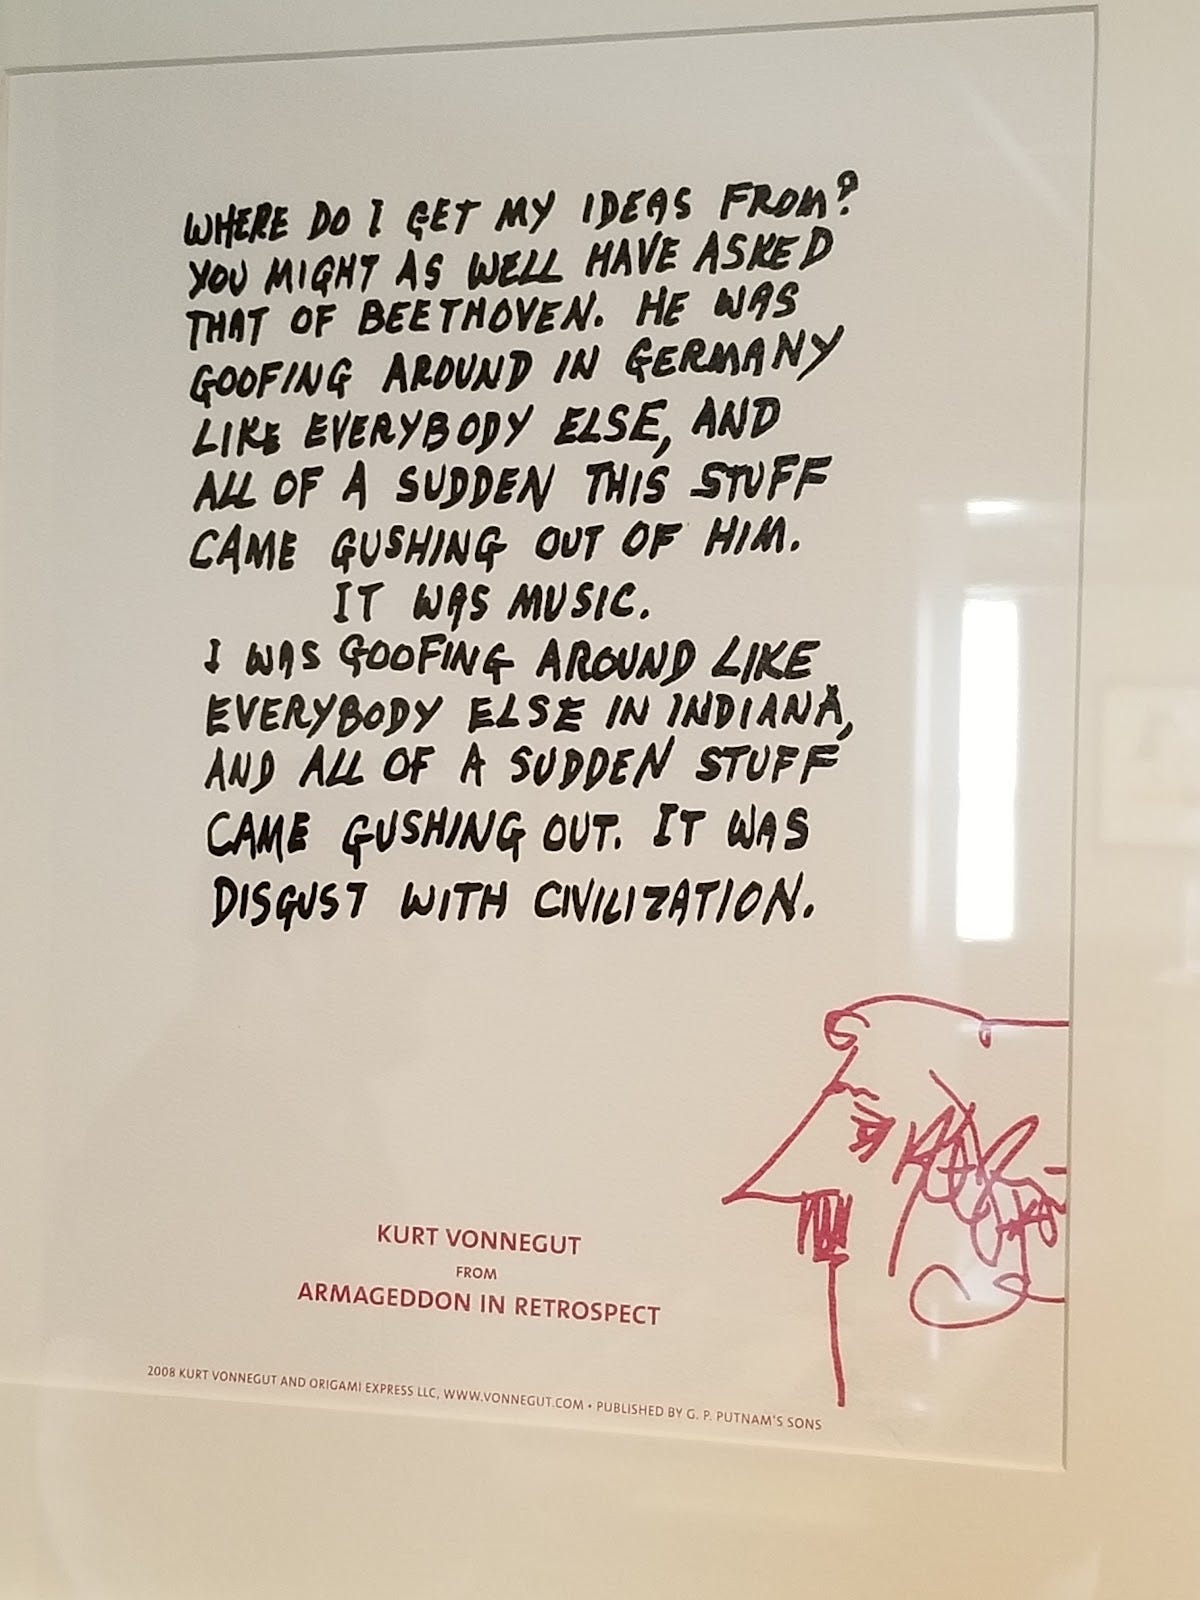 WHERE DO I GET MY IDEAS FROM?
YOU MIGHT AS WELL HAVE ASKED
THAT OF BEETHOVEN. HE WAS
GOOFING AROUND IN GERMANY
LIKE EVERYBODY ELSE, AND
ALL OF A SUDDEN THIS STUFF
CAME GUSHING OUT OF HIM.
IT WAS MUSIC.
I WAS GOOFING AROUND LIKE
EVERYBODY ELSE IN INDIANA,
AND ALL OF A SUDDEN STUFF
CAME GUSHING OUT. IT WAS
DISGUST WITH CIVILIZATION.
KURT VONNEGUT
FROM
ARMAGEDDON IN RETROSPECT
2008 KURT VONNEGUT AND ORIGAMI EXPRESS LLC, WWW.VONNEGUT.COM • PUBLISHED BY G. P. PUTNAM'S SONS